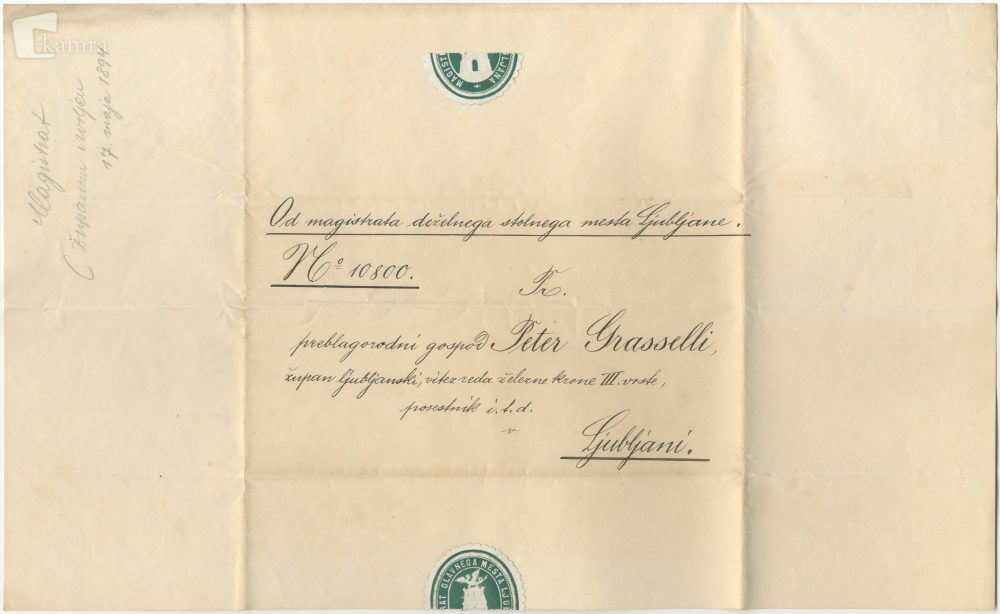 kamra
Magistrat
(županu
17. maja 1894
MAGIST LJANA
Od magistrata deželnega stolnega mesta Ljubljane.
Nº 10800.
Pr.
preblagorodni gospod Peter Grasselli,
župan ljubljanski, vitez reda železne krone III. vrste,
posestnik i. t. d.
v
Ljubljani.
RAT GLAVNEGA MESTA LJU